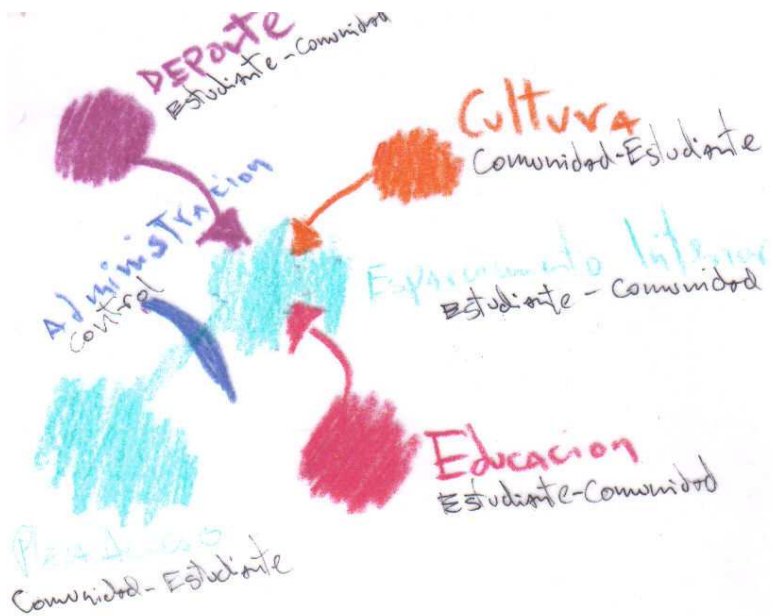 DEPORTE
Estudiante-Comunidad
Cultura
Comunidad-Estudiante
Administracion
Control
Esparcimiento Interior
Estudiante - Comunidad
Educacion
Estudiante-Comunidad
Plaza Acceso
Comunidad - Estudiante